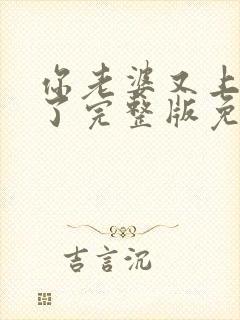 你老婆又上
了完整版免
吉言沉